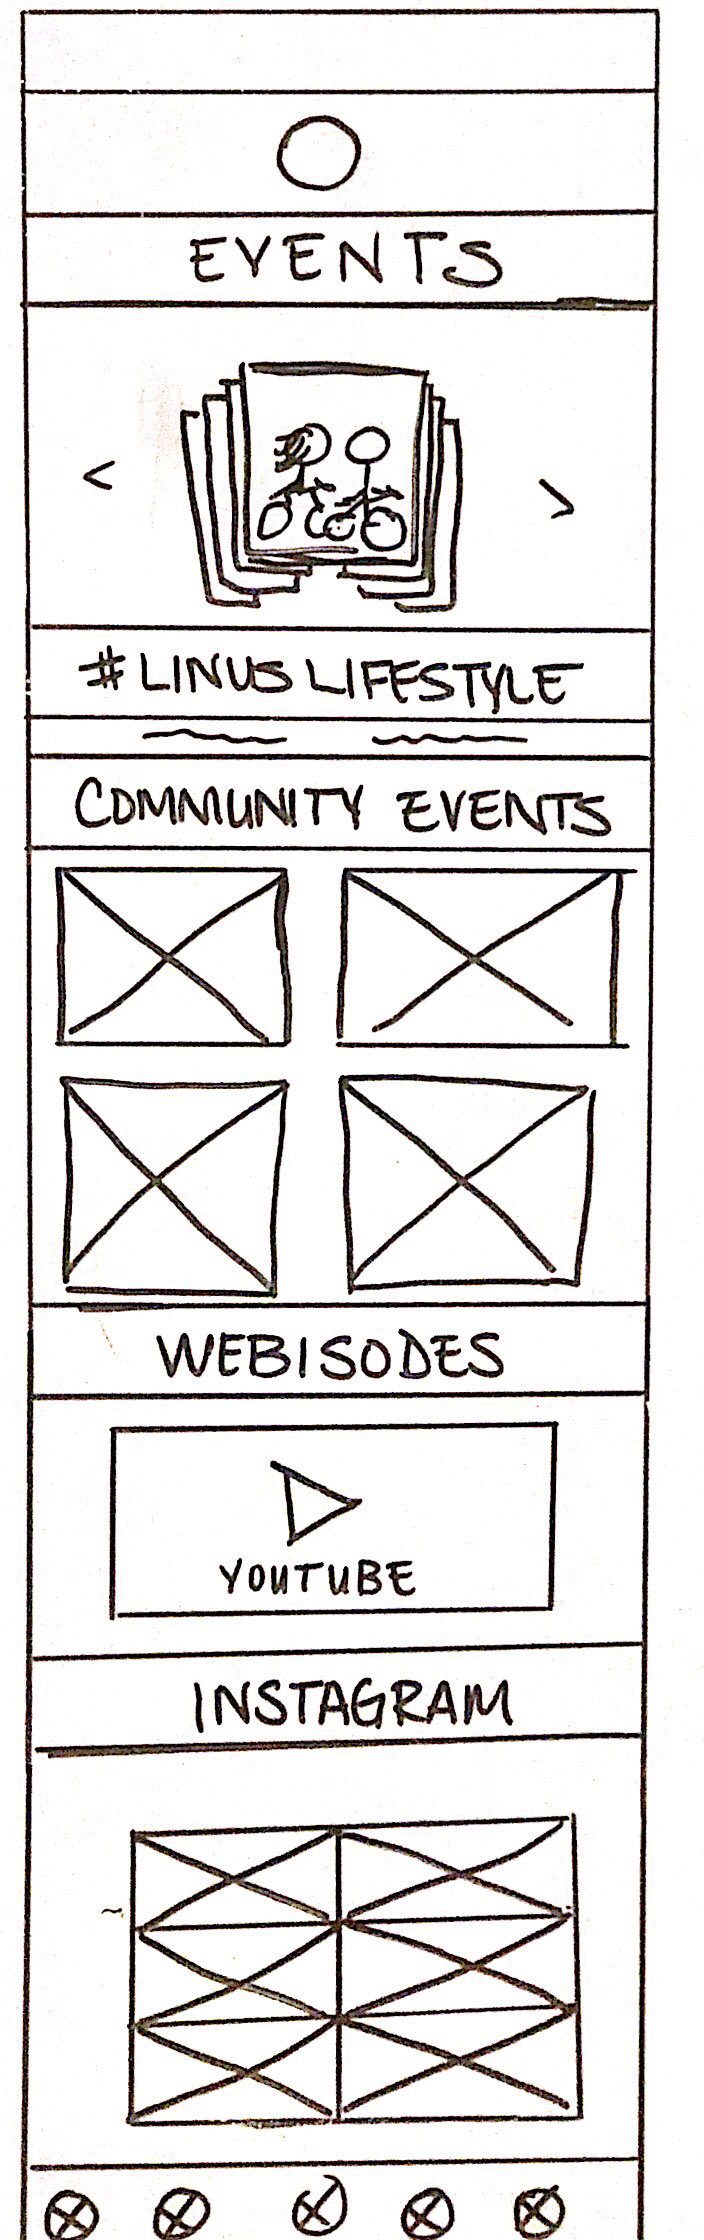 EVENTS
<
>
#LINUS LIFESTYLE
COMMUNITY EVENTS
WEBISODES
YOUTUBE
INSTAGRAM